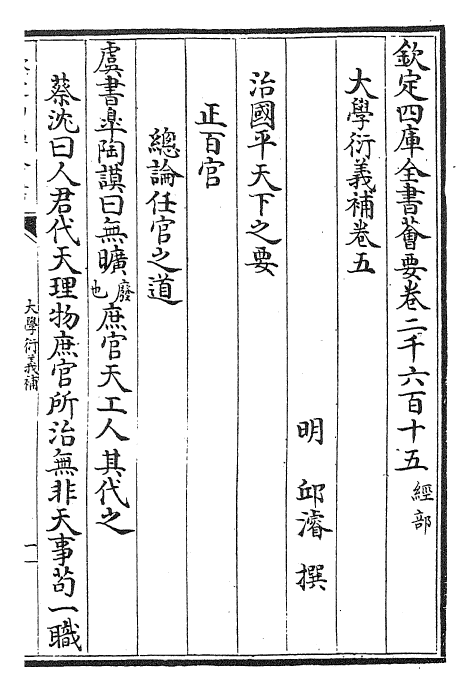 欽定四庫全書薈要卷二千六百十五 經部
大學衍義補卷五
明 邱濬 撰
治國平天下之要
正百官
總論任官之道
虞書臯陶謨曰無曠廢也庶官天工人其代之
蔡沈曰人君代天理物庶官所治無非天事苟一職
大學衍義補
一